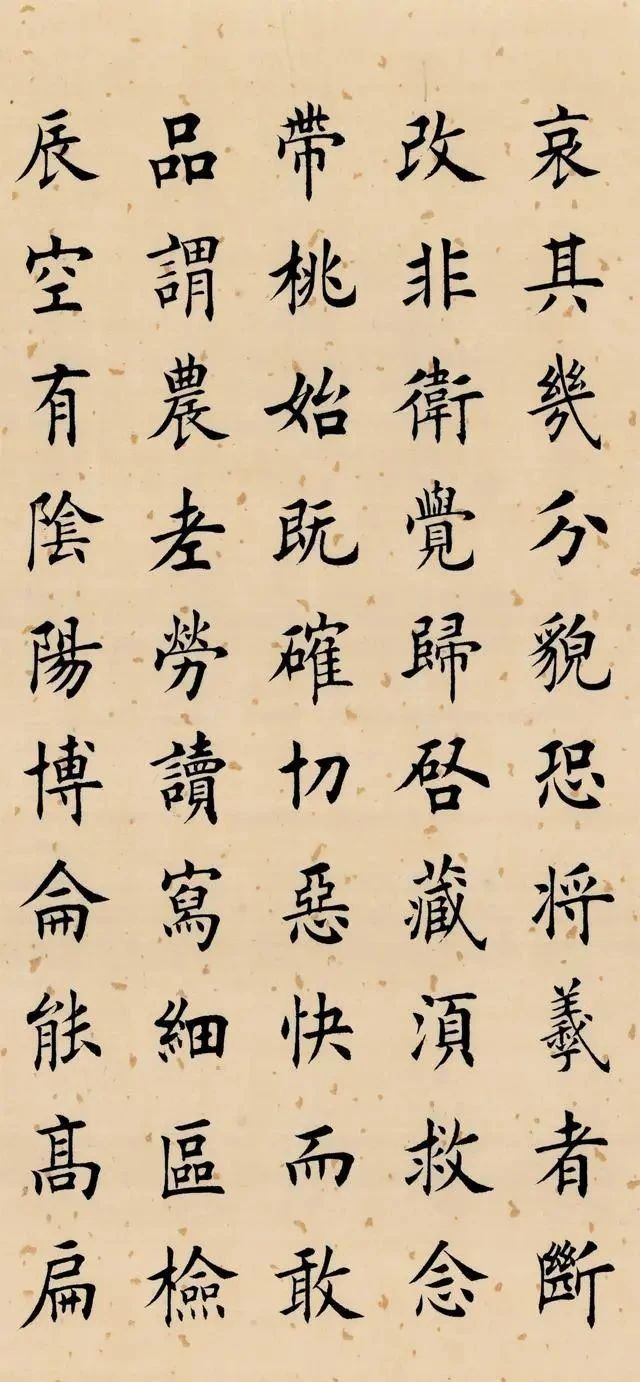 哀其幾分貌恐将羲者斷
改非衛覺歸啓藏須救念
帶桃始既確切惡快而敢
品謂農老勞讀寫細區檢
辰空有陰陽博侖能高扁